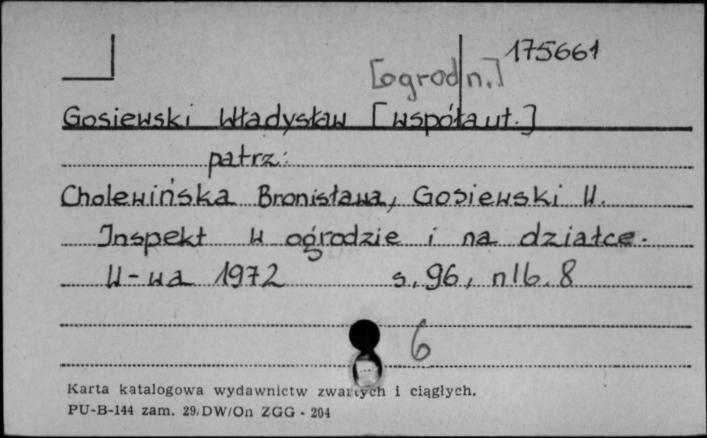 175661
[ogrodn.]
Gosiewski Władysław [współaut.]
patrz:
Cholewińska Bronisława, Gosiewski W.
Inspekt w ogrodzie i na działce.
W-wa 1972 s. 96, nlb. 8
6
Karta katalogowa wydawnictw zwartych i ciągłych.
PU-B-144 zam. 29/DW/On ZGG - 204